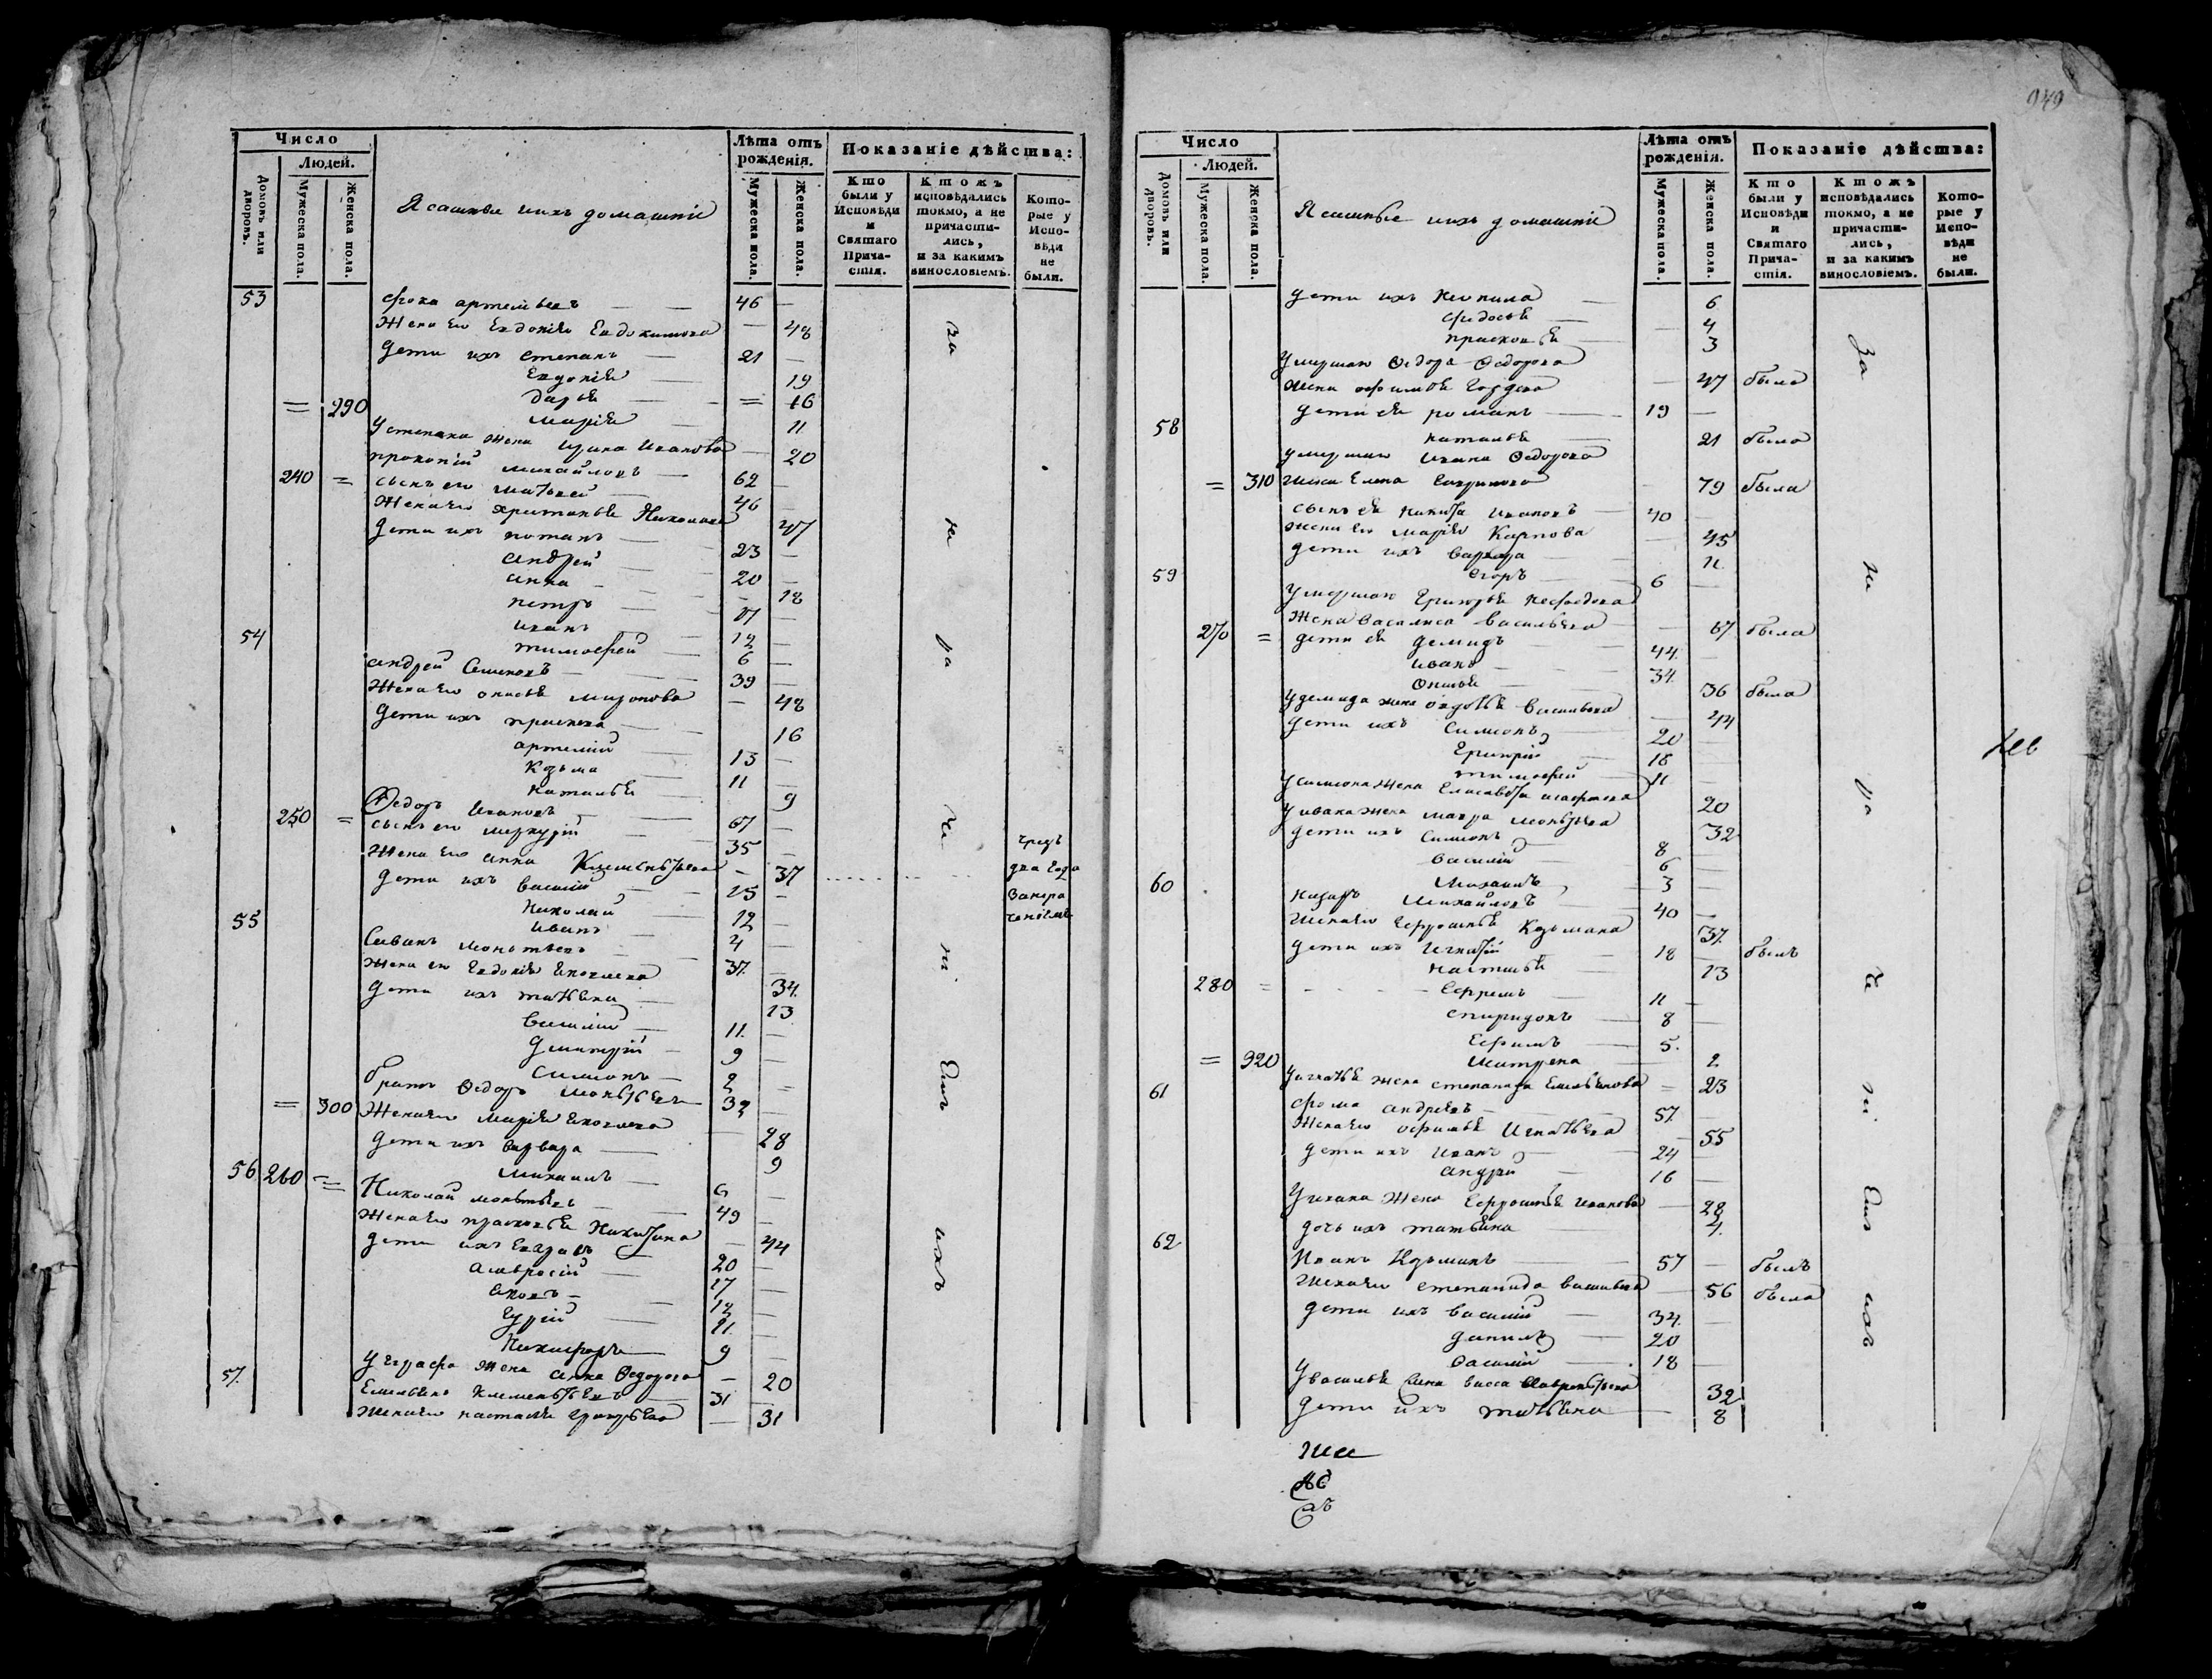 Число
Людей.
Домовъ или дворовъ.
Мужеска пола.
Женска пола.
Ясашные и ихъ домашніе
Лѣта отъ рожденія.
Мужеска пола.
Женска пола.
Показаніе дѣйства:
Кто были у Исповѣди и Святаго Прича-стія.
Ктожъ исповѣдались токмо, а не причасти-лись, и за какимъ винословіемъ.
Кото-рые у Испо-вѣди не были.
53 фока артемьевъ 46
Жена его Евдокія Евдокимова 48
Дети ихъ степанъ 21
Евдокія 19
= 290 дарья = 16
марія 11
У степана жена ирина Иванова 20
прокопій михайловъ 62
240 = сынъ его матвей 46
Жена его христинья Николаева 47
дети ихъ потапъ 23
андрей 20
анна 18
петръ 17
иванъ 12
54 тимофей 6
андрей Семеновъ 39
Жена его онисья миронова 48
Дети ихъ 16
артемій 13
Козьма 11
наталья 9
Ѳедоръ Ивановъ 67
250 = сынъ его меркурій 35
Жена его анна Клементьева 37
дети ихъ василій 15
Николай 12
55 иванъ 4
моисеевъ 37
Жена его Евдокія Яковлева 34
дети ихъ татьяна 13
василій 11
Дмитрій 9
Симеонъ 2
братъ Ѳедоръ 32
= 300 Жена его Марія Яковлева 28
дети ихъ варвара 9
56 260 = михаилъ 6
Николай 49
Жена его прасковья Никитина 44
дети ихъ Евграфъ 20
Амвросій 17
Яковъ 12
Гурій 11
Никифоръ 9
57 У Евграфа жена анна Ѳедорова 20
Емельянъ Клементьевъ 31
Жена его настасья Григорьева 31
за
не
ра
че
ні
емъ
ихъ
чрезъ
два года
за нера
ченіемъ
949
Число
Людей.
Домовъ или дворовъ.
Мужеска пола.
Женска пола.
Ясашные и ихъ домашніе
Лѣта отъ рожденія.
Мужеска пола.
Женска пола.
Показаніе дѣйства:
Кто были у Исповѣди и Святаго Прича-стія.
Ктожъ исповѣдались токмо, а не причасти-лись, и за какимъ винословіемъ.
Кото-рые у Испо-вѣди не были.
дети ихъ неонила 6
федосья 4
прасковья 3
умершаго Ѳедора Ѳедорова
жена офимья Гордеева 47 была
58 дети ея романъ 19
наталья 21 была
умершаго Ивана Ѳедорова
= 310 жена Елена 79 была
сынъ ея никита ивановъ 40
жена его марія Карпова 45
дети ихъ варвара 11
59 Егоръ 6
умершаго Григорья
270 = Жена василиса васильева 67 была
дети ея демидъ 44
иванъ 34
Онисья 36 была
У демида жена авдотья васильева 44
дети ихъ Симеонъ 20
Григорій 16
тимофей 11
У симеона жена Елисавета 20
У ивана жена мавра 32
дети ихъ Симеонъ 8
василій 6
60 Михаилъ 3
назаръ Михайловъ 40
Жена его Ефросинья Козьмина 37
дети ихъ Игнатій 18 былъ
настасья 13
280 = Ефремъ 11
спиридонъ 8
Ефимъ 5
= 320 матрена 2
61 У игнатья жена степанида Емельянова 23
фома андреевъ 57
Жена его офимья Игнатьева 55
дети ихъ иванъ 24
андрей 16
У ивана жена Ефросинья иванова 28
62 дочь ихъ татьяна 4
Иванъ Козьминъ 57 былъ
Жена его степанида васильева 56 была
дети ихъ василій 34
данилъ 20
василій 18
У василья жена васса Лаврентьева 32
дети ихъ татьяна 8
за
не
ра
че
ні
емъ
ихъ